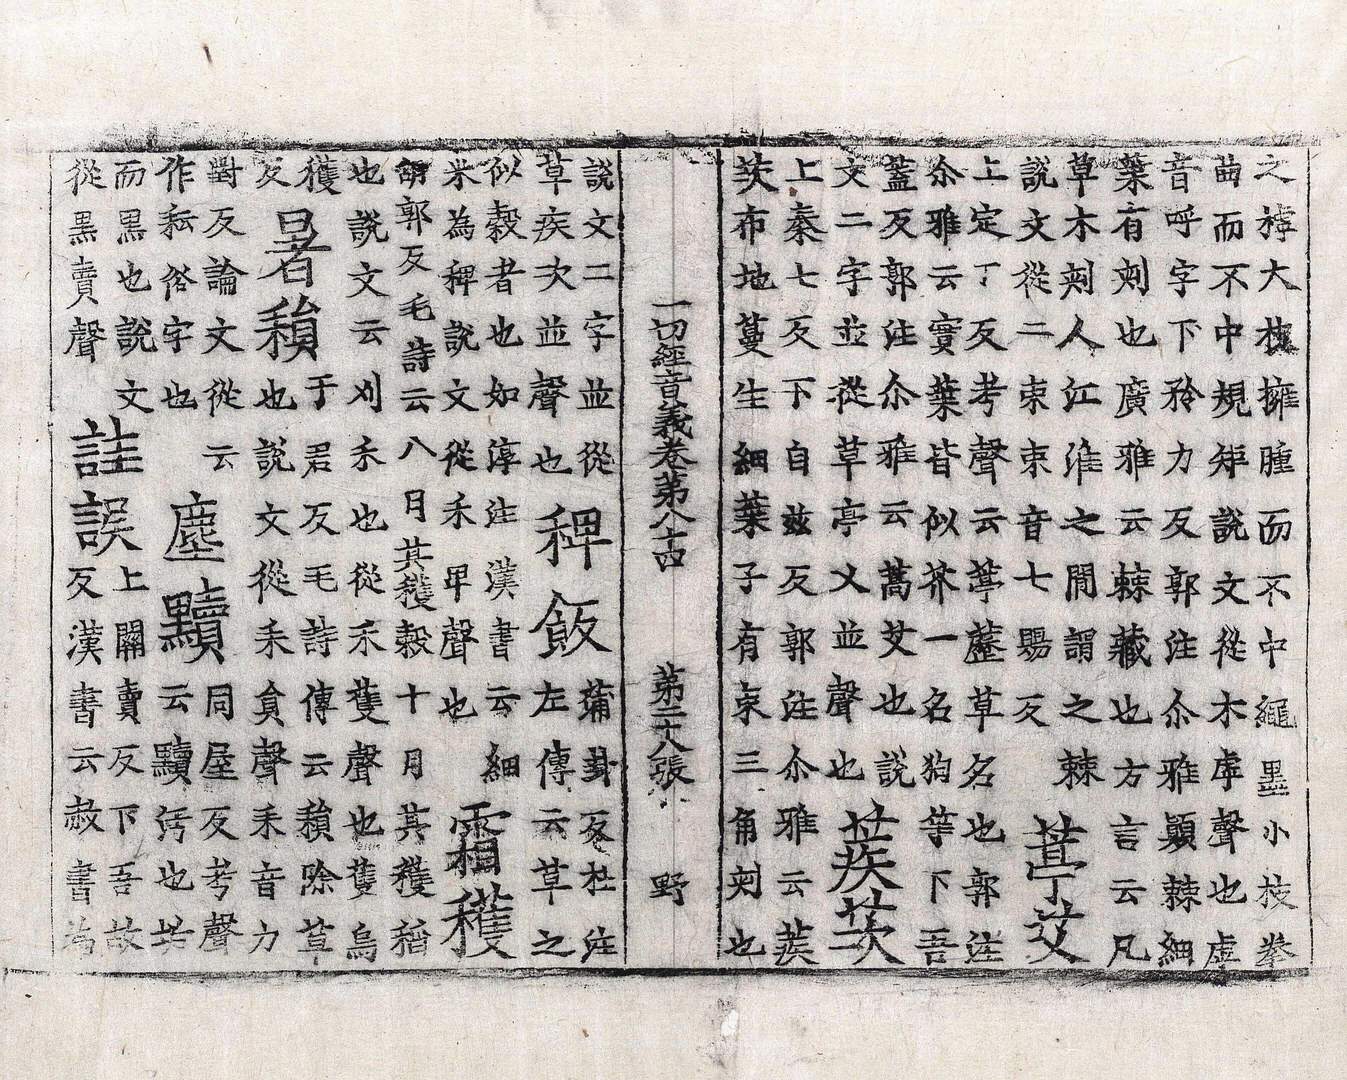 之樗大樸擁腫而不中繩墨小枝拳
曲而不中規矩說文從木虖聲也虖
音呼字下矜力反郭注尒雅顈棘細
葉有刾也廣雅云棘藏也方言云凡
草木刾人江淮之閒謂之棘
說文從二朿朿音七賜反
葶艾
上定丁反考聲云葶藶草名也郭注
尒雅云實葉皆似芥一名狗等下吾
蓋反郭注尒雅云蒿艾也說
文二字並從草亭乂並聲也
蒺茨
上秦七反下自玆反郭注尒雅云蒺
茨布地蔓生細葉子有朿三角刾也
一切經音義卷第八十四 第二十八張 野
說文二字並從
草疾次並聲也
稗飯
蒲卦反杜注
左傳云草之
似穀者也如淳注漢書云細
米為稗說文從禾卑聲也
霜穫
胡郭反毛詩云八月其穫穀十月其穫稻
也說文云刈禾也從禾蒦聲也蒦烏
穫
反
暑𦔐
于君反毛詩傳云𦔐除草
也說文從耒貟聲耒音力
對反論文從云
作耘俗字也
塵黷
同屋反考聲
云黷污也
而黒也說文
從黒賣聲
詿誤
上關賣反下吾故
反漢書云赦書為